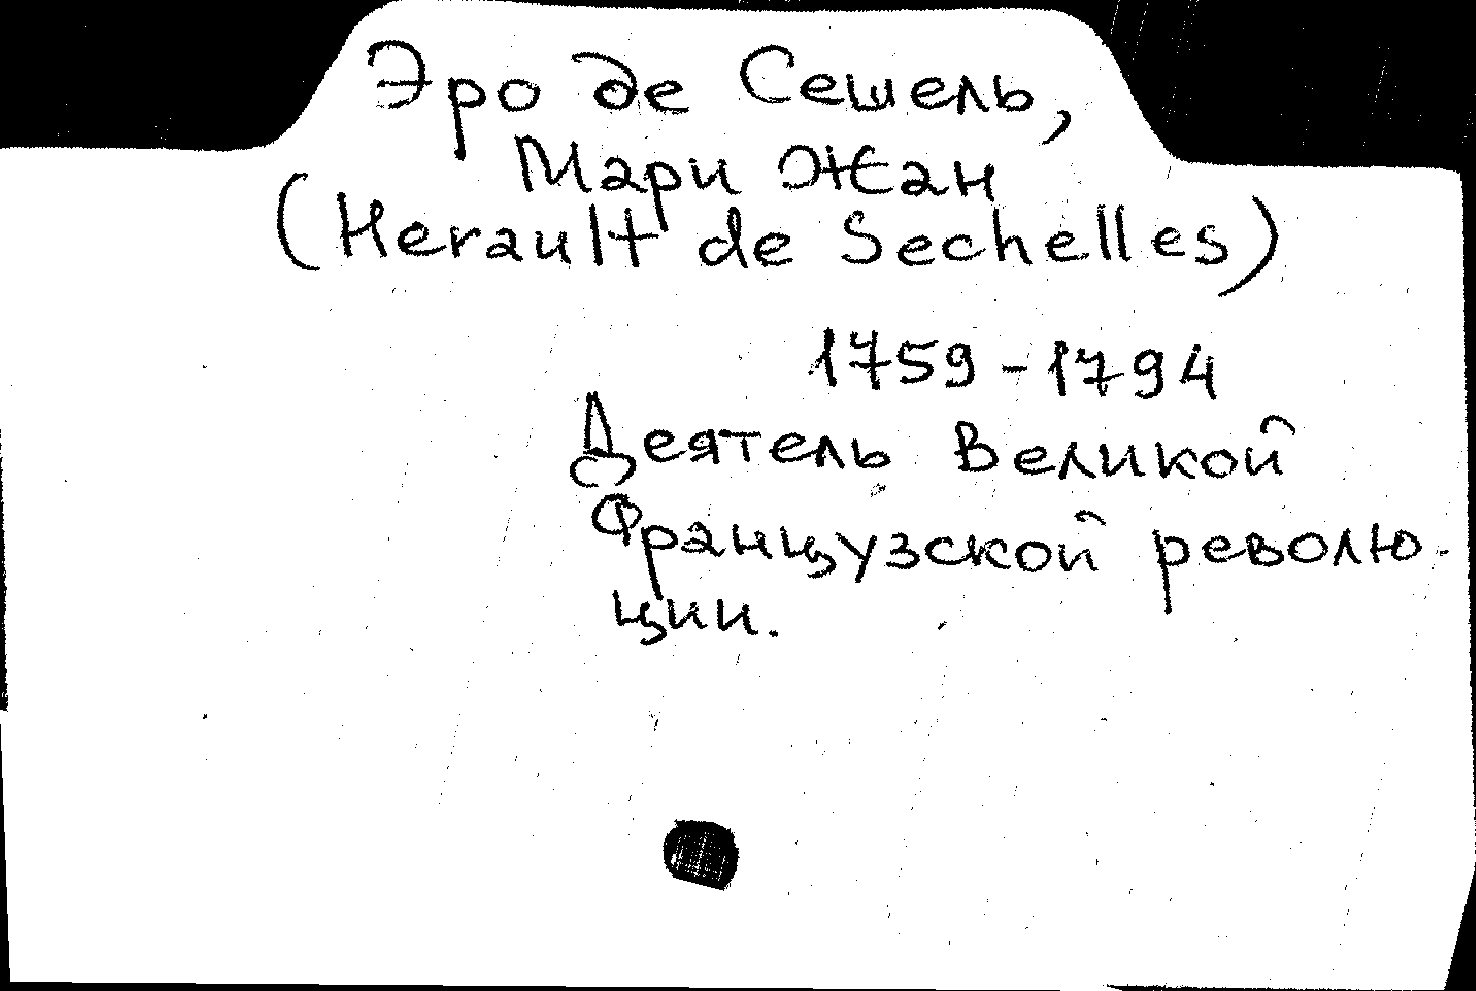 Эро де Сешель,
Мари Жан
(Herault de Sechelles)
1759-1794
Деятель Великой
Французской револю-
ции.